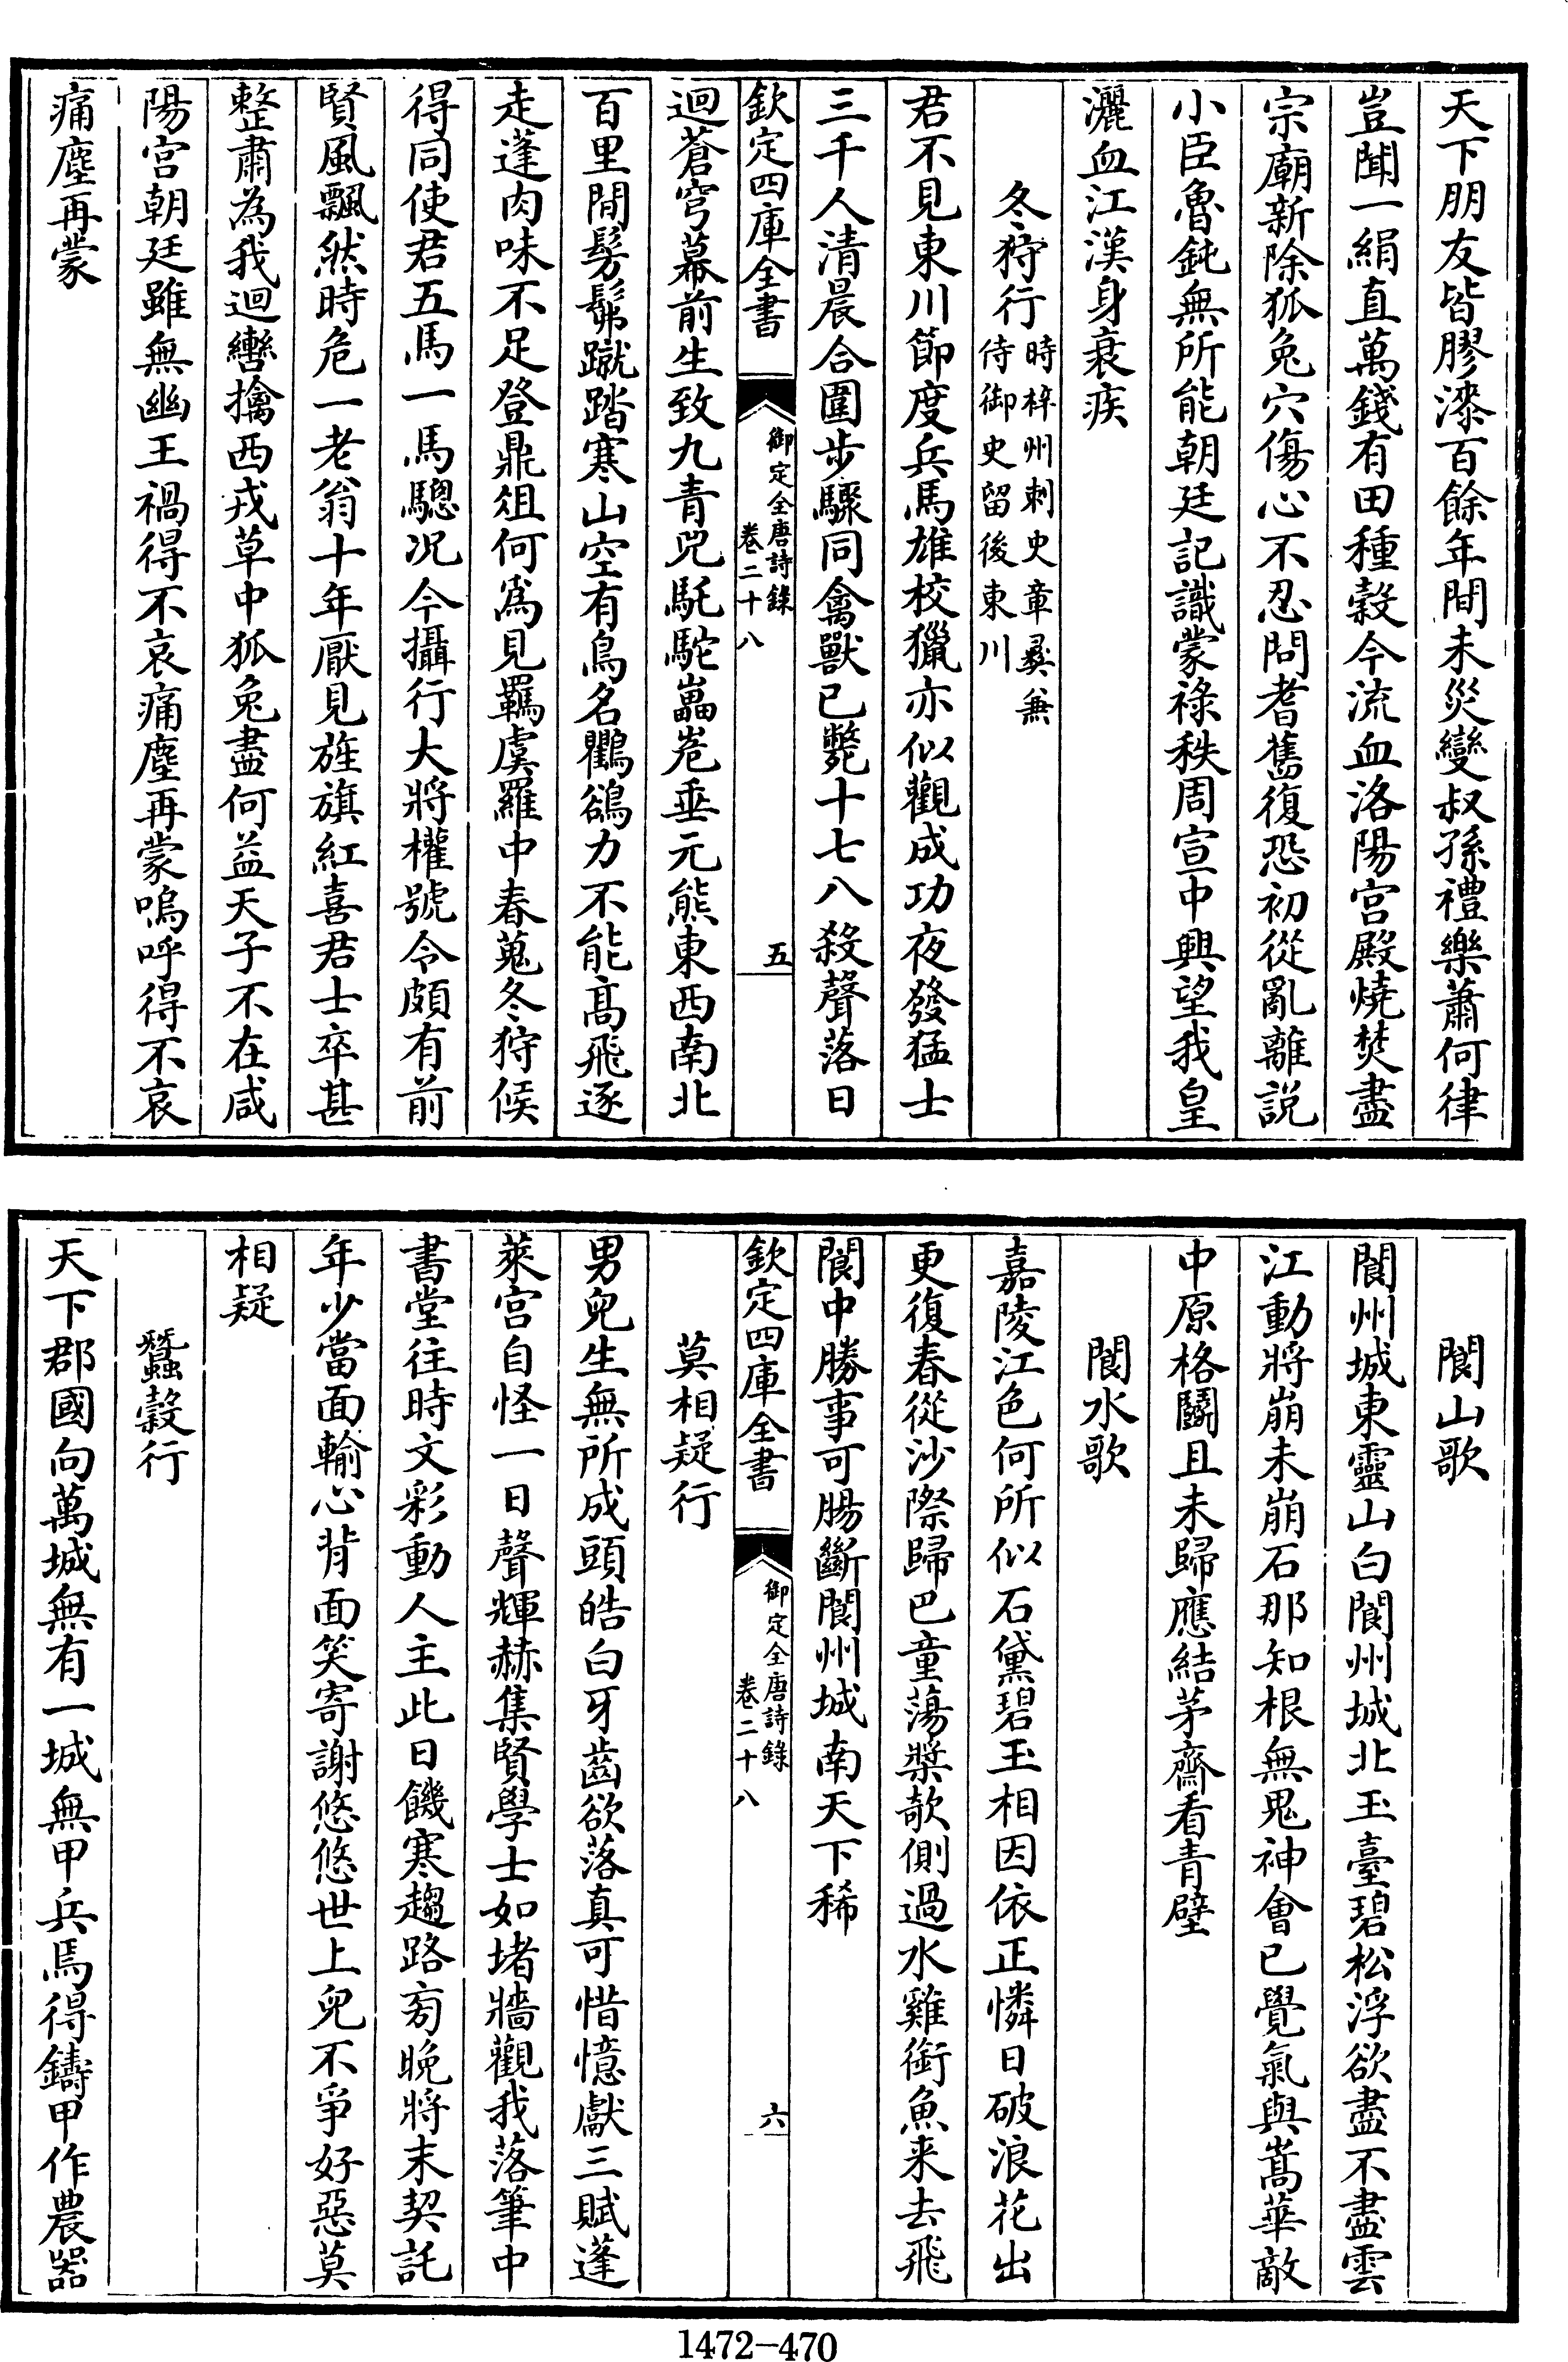 天下朋友皆膠漆百餘年間未災變叔孫禮樂蕭何律
豈聞一絹直萬錢有田種穀今流血洛陽宮殿燒焚盡
宗廟新除狐兔穴傷心不忍問耆舊復恐初從亂離説
小臣魯鈍無所能朝廷記識蒙祿秩周宣中興望我皇
灑血江漢身衰疾
冬狩行時梓州刺史章彞兼
侍御史留後東川
君不見東川節度兵馬雄校獵亦似觀成功夜發猛士
三千人清晨合圍步驟同禽獸已斃十七八殺聲落日
欽定四庫全書
御定全唐詩錄
卷二十八
五
迴蒼穹幕前生致九青兕馲駝㠥峞垂元熊東西南北
百里間髣髴蹴踏寒山空有鳥名鸜鵒力不能髙飛逐
走蓬肉味不足登鼎俎何為見羈虞羅中春蒐冬狩候
得同使君五馬一馬驄况今攝行大將權號令頗有前
賢風飄然時危一老翁十年厭見旌旗紅喜君士卒甚
整肅為我迴轡擒西戎草中狐兔盡何益天子不在咸
陽宮朝廷雖無幽王禍得不哀痛塵再蒙嗚呼得不哀
痛塵再蒙
閬山歌
閬州城東靈山白閬州城北玉臺碧松浮欲盡不盡雲
江動將崩未崩石那知根無鬼神會已覺氣與嵩華敵
中原格鬭且未歸應結茅齋看青壁
閬水歌
嘉陵江色何所似石黛碧玉相因依正憐日破浪花出
更復春從沙際歸巴童蕩槳欹側過水雞銜魚来去飛
閬中勝事可腸斷閬州城南天下稀
欽定四庫全書
御定全唐詩錄
卷二十八
六
莫相疑行
男兒生無所成頭皓白牙齒欲落真可惜憶獻三賦蓬
萊宮自怪一日聲輝赫集賢學士如堵牆觀我落筆中
書堂往時文彩動人主此日饑寒趨路旁晚將末契託
年少當面輸心背面笑寄謝悠悠世上兒不爭好惡莫
相疑
蠶穀行
天下郡國向萬城無有一城無甲兵焉得鑄甲作農器
1472-470